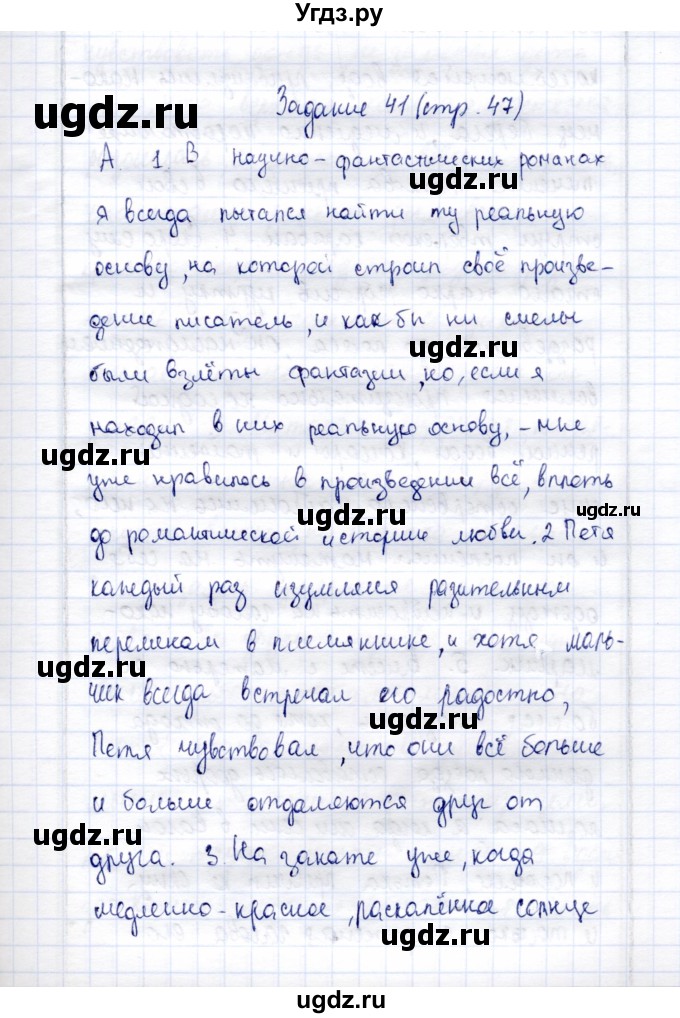 Угдз.ру
Задание 41 (стр. 47)
А. 1. В научно-фантастических романах
ugdz.ru
я всегда пытался найти ту реальную
основу, на которой строил своё произве-
дение писатель, и как бы ни смелы
ugdz.ru
были взлёты фантазии, но, если я
находил в них реальную основу, - мне
ugdz.ru
уже нравилось в произведении всё, вплоть
ugdz.ru
до романтической истории любви. 2 Петя
каждый раз изумлялся разительным
переменам в племяннике, и хотя маль-
ugdz.ru
чик всегда встречал его радостно,
ugdz.ru
Петя чувствовал, что они всё больше
и больше отдаляются друг от
ugdz.ru
друга. 3. На закате уже, когда
медленно-красное, раскалённое солнце
ugdz.ru
ugdz.ru